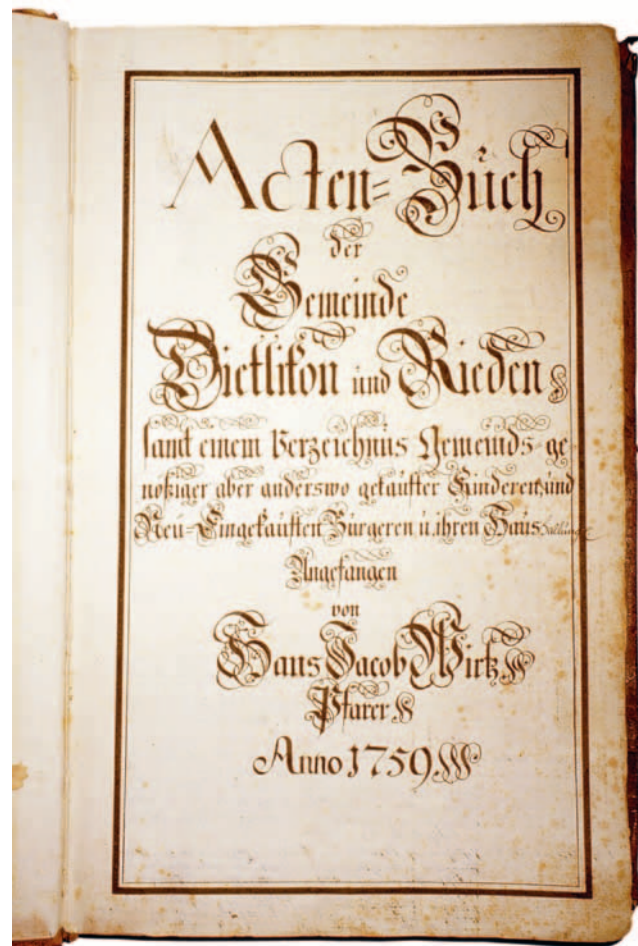 Acten=Buch
der
Gemeinde
Dietlikon und Rieden
samt einem Verzeichnus Gemeinds=ge
noßiger aber anderswo getauffter Kinderen, und
Neu=Eingekaufften Burgeren u. ihren Haushaltungen
Angefangen
von
Hans Jacob Wirtz
Pfarer
Anno 1759